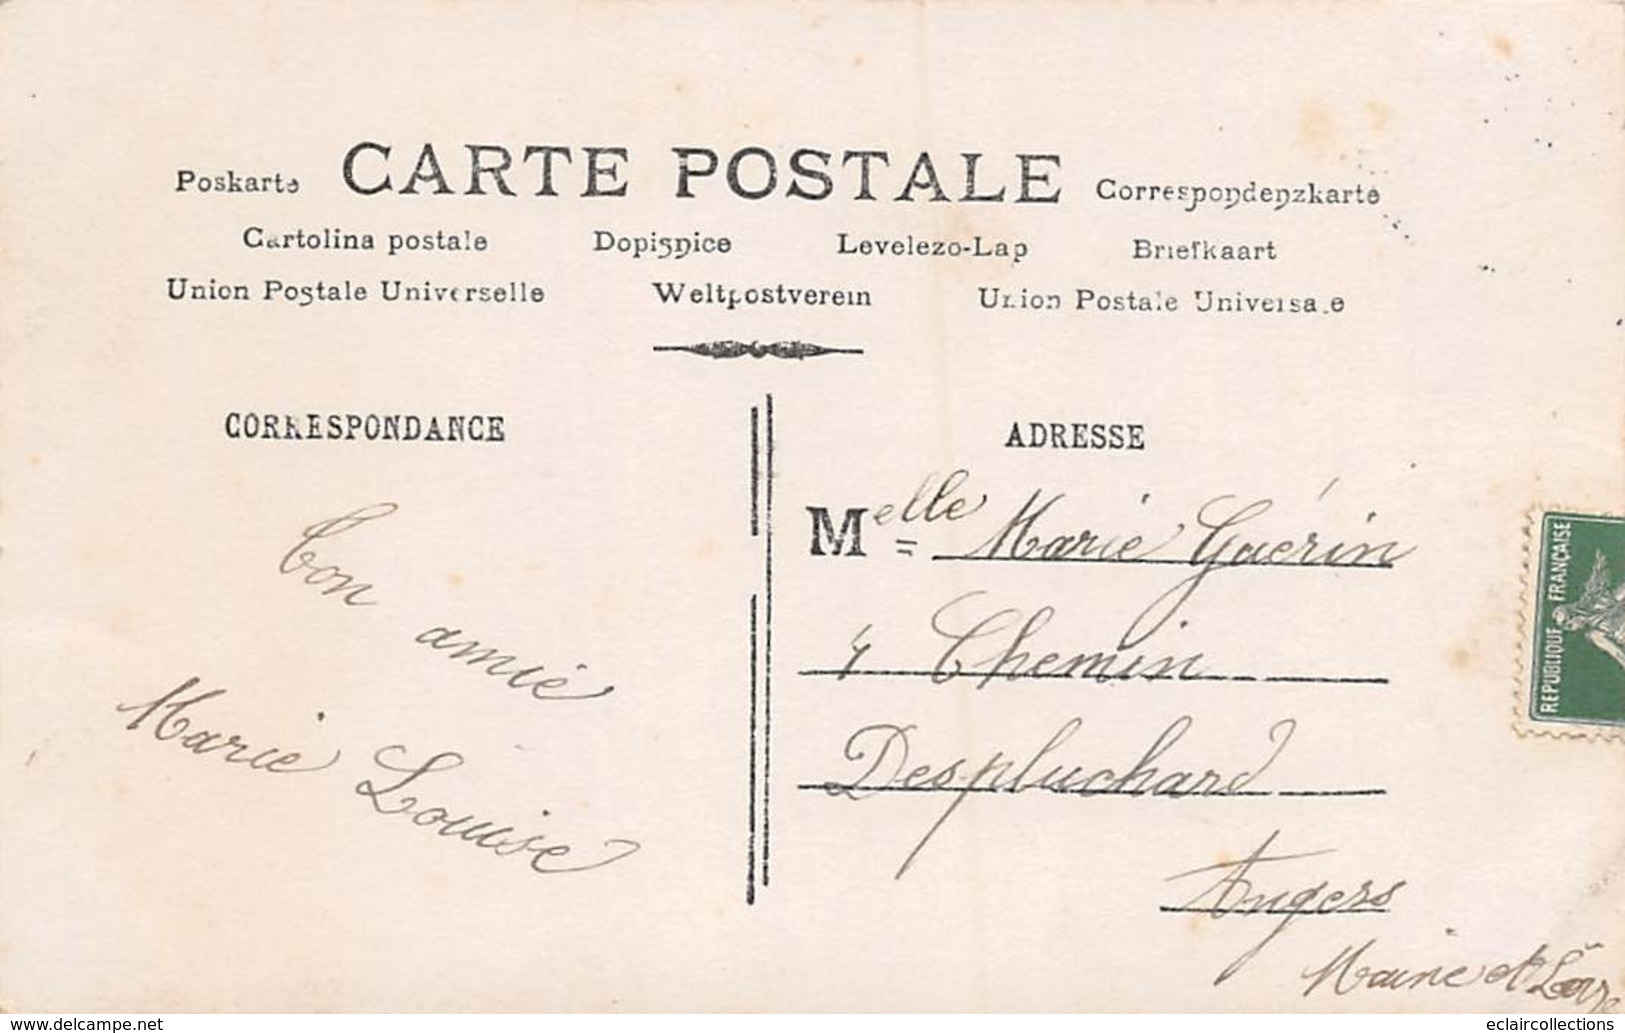 CARTE POSTALE
Poskarte Correspondenzkarte
Cartolina postale Dopisnice Levelezo-Lap Briefkaart
Union Postale Universelle Weltpostverein Union Postale Universale
CORRESPONDANCE
Ton amie
Marie Louise
ADRESSE
Melle Marie Guérin
4 Chemin
Despluchard
Angers
Maine et Loire
REPUBLIQUE FRANÇAISE
www.delcampe.net
eclaircollections